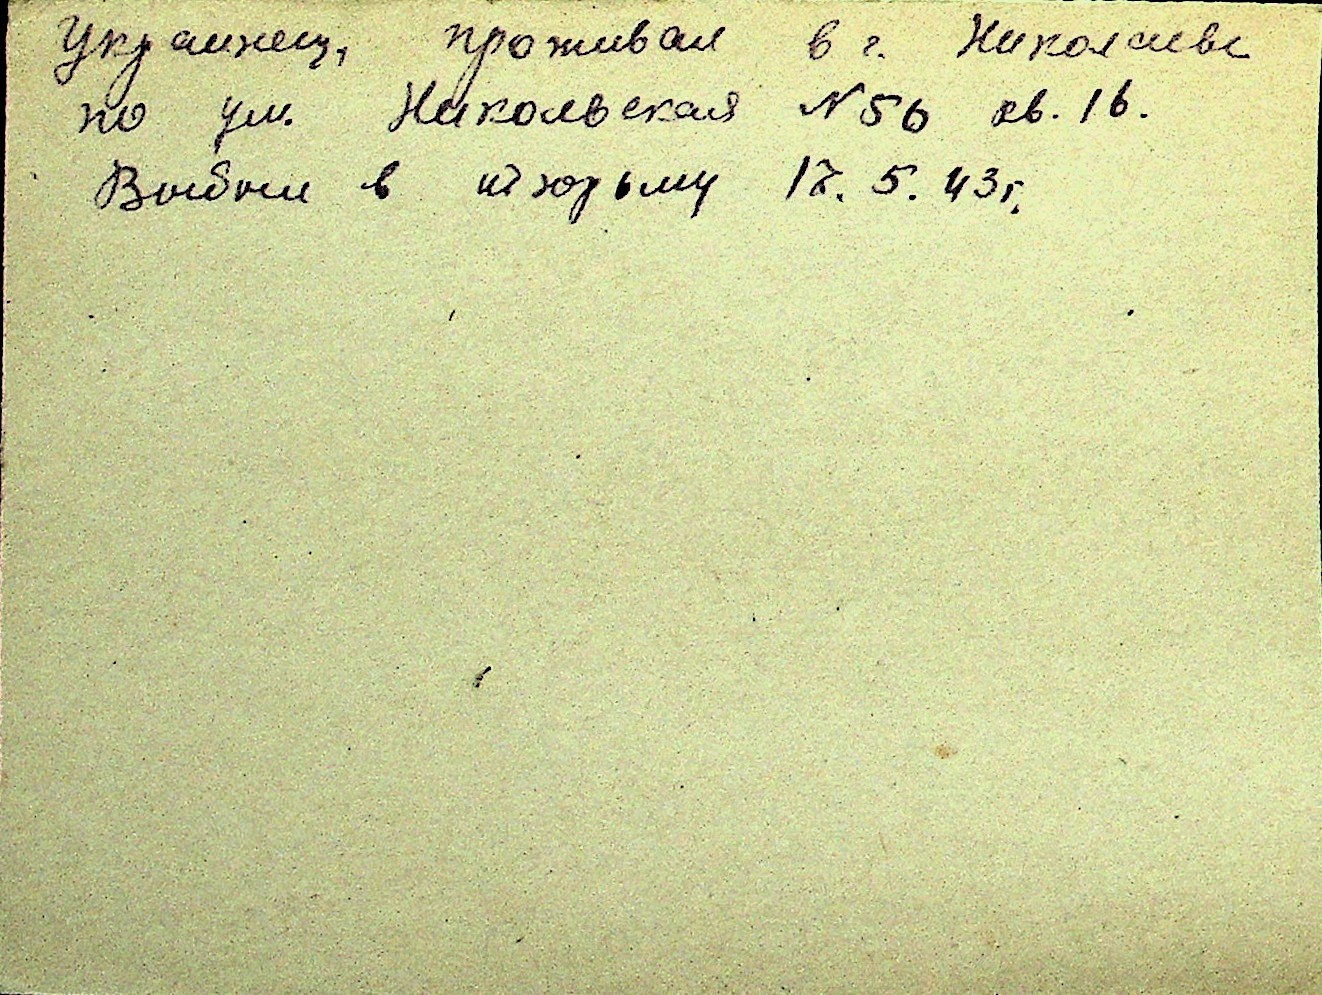 Украинец, проживал в г. Николаеве
по ул. Никольская № 56 кв. 16.
Выбыл в тюрьму 17. 5. 43г.